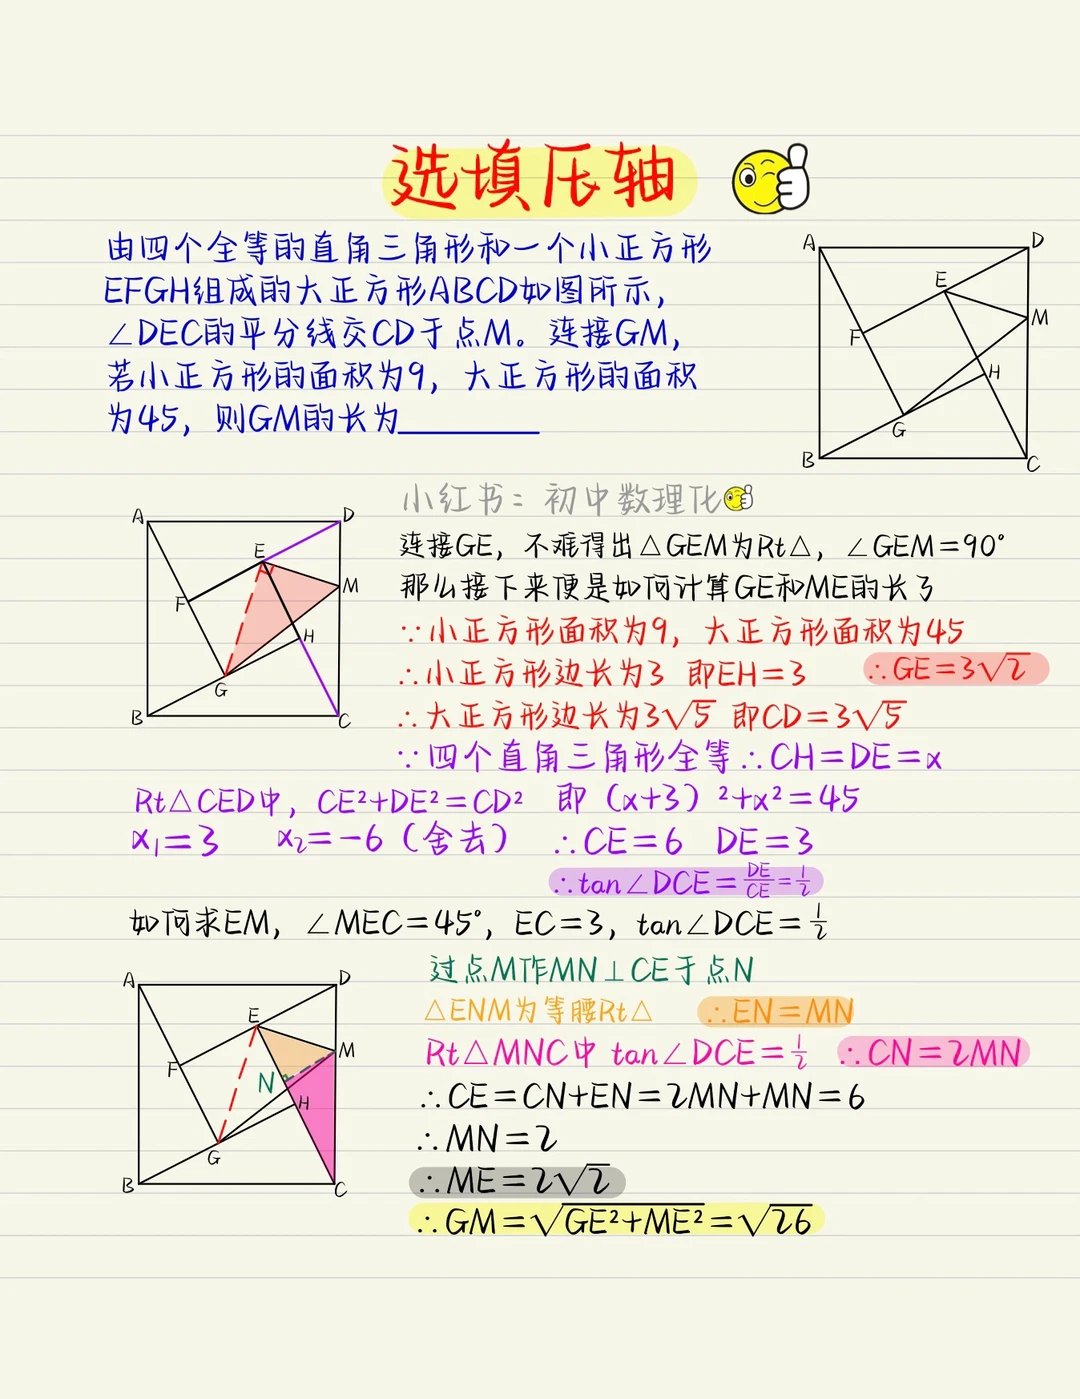 选填压轴
由四个全等的直角三角形和一个小正方形
EFGH组成的大正方形ABCD如图所示,
∠DEC的平分线交CD于点M。连接GM,
若小正方形的面积为9,大正方形的面积
为45,则GM的长为________
A
D
E
M
F
H
G
B
C
小红书:初中数理化
A
D
E
M
F
H
G
B
C
连接GE,不难得出△GEM为Rt△,∠GEM=90°
那么接下来便是如何计算GE和ME的长了
∵小正方形面积为9,大正方形面积为45
∴小正方形边长为3 即EH=3 ∴GE=3√2
∴大正方形边长为3√5 即CD=3√5
∵四个直角三角形全等∴CH=DE=x
Rt△CED中,CE²+DE²=CD² 即(x+3)²+x²=45
x₁=3 x₂=-6(舍去) ∴CE=6 DE=3
∴tan∠DCE=DE/CE=1/2
如何求EM,∠MEC=45°,EC=3,tan∠DCE=1/2
A
D
E
M
F
N
H
G
B
C
过点M作MN⊥CE于点N
△ENM为等腰Rt△ ∴EN=MN
Rt△MNC中 tan∠DCE=1/2 ∴CN=2MN
∴CE=CN+EN=2MN+MN=6
∴MN=2
∴ME=2√2
∴GM=√GE²+ME²=√26